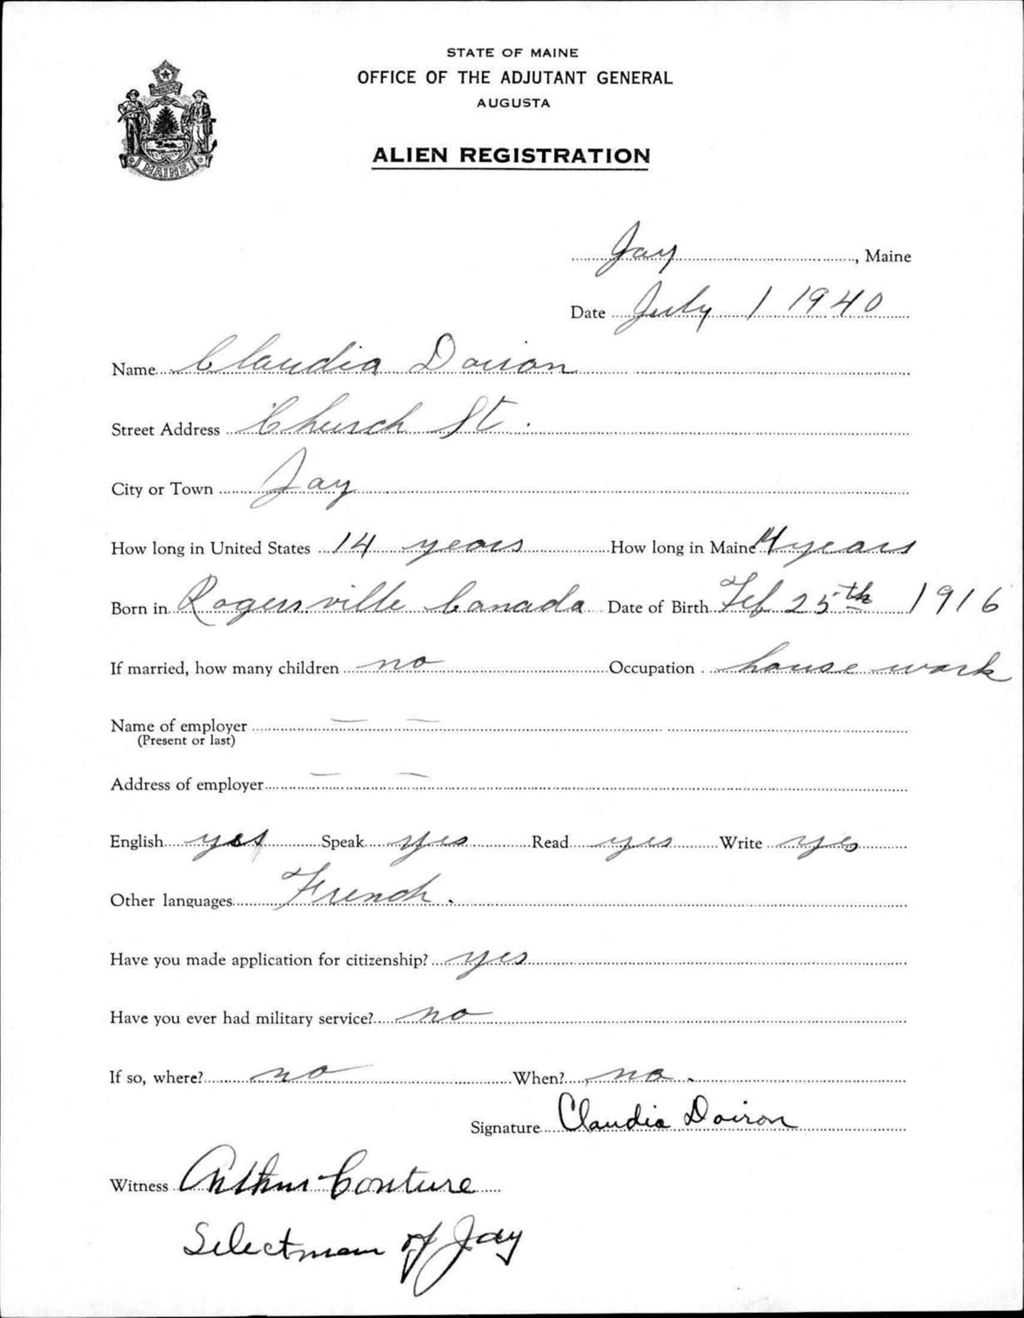 STATE OF MAINE
OFFICE OF THE ADJUTANT GENERAL
AUGUSTA
ALIEN REGISTRATION
MAINE
Jay, Maine
Date July 1 1940
Name Claudia Doiron
Street Address Church St.
City or Town Jay
How long in United States 14 years How long in Maine 14 years
Born in Rogersville Canada Date of Birth Feb 25th 1916
If married, how many children no Occupation house work
Name of employer — —
(Present or last)
Address of employer — —
English yes Speak yes Read yes Write yes
Other languages French.
Have you made application for citizenship? yes
Have you ever had military service? no
If so, where? no When? no.
Signature Claudia Doiron
Witness Arthur Couture
Selectman of Jay